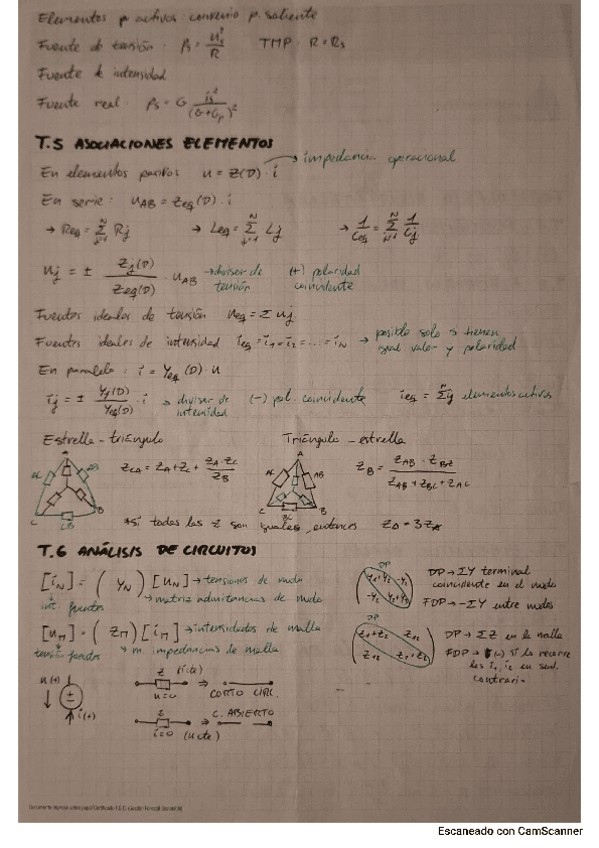 Elementos p activos: convenio p. saliente
Fuente de tensión: ps = us²/R   TMP: R = Rs
Fuente de intensidad
Fuente real: ps = G is²/(G+Gp)²
T.5 ASOCIACIONES ELEMENTOS
En elementos pasivos u = Z(D)·i → impedancia operacional
En serie: uAB = Zeq(D)·i
→ Req = Σ(j=1, N) Rj   → Leq = Σ(j=1, N) Lj   → 1/Ceq = Σ(j=1, N) 1/Cj
uj = ± Zj(D)/Zeq(D) · uAB → divisor de tensión   (+) polaridad coincidente
Fuentes ideales de tensión ueq = Σ uj
Fuentes ideales de intensidad ieq = i1 = i2 = ... = iN → posible solo si tienen igual valor y polaridad
En paralelo: i = Yeq(D)·u
ij = ± Yj(D)/Yeq(D) · i → divisor de intensidad   (-) pol. coincidente   ieq = Σ ij elementos activos
Estrella - triángulo   Triángulo - estrella
A AC AB C B
ZCA = ZA + ZC + ZA·ZC/ZB
A AB BC C B
ZB = ZAB · ZBC / ZAB + ZBC + ZAC
*si todas las Z son iguales, entonces   ZΔ = 3Z
T.6 ANÁLISIS DE CIRCUITOS
[iN] = (YN) [uN] → tensiones de nudo
int. fuentes → matriz admitancias de nudo
DP
DP → ΣY terminal coincidente en el nudo
FDP → -ΣY entre nudos
[uM] = (ZM) [iM] → intensidades de malla
tensión fuentes → m. impedancias de malla
DP
DP → ΣZ en la malla
FDP → (-) si la recorre las i1, i2 en sent. contrario
u(+)
i(+)
Z (i cte)
u=0 ⇒ CORTO CIRC.
Z
i=0 (u cte) ⇒ C. ABIERTO
Escaneado con CamScanner